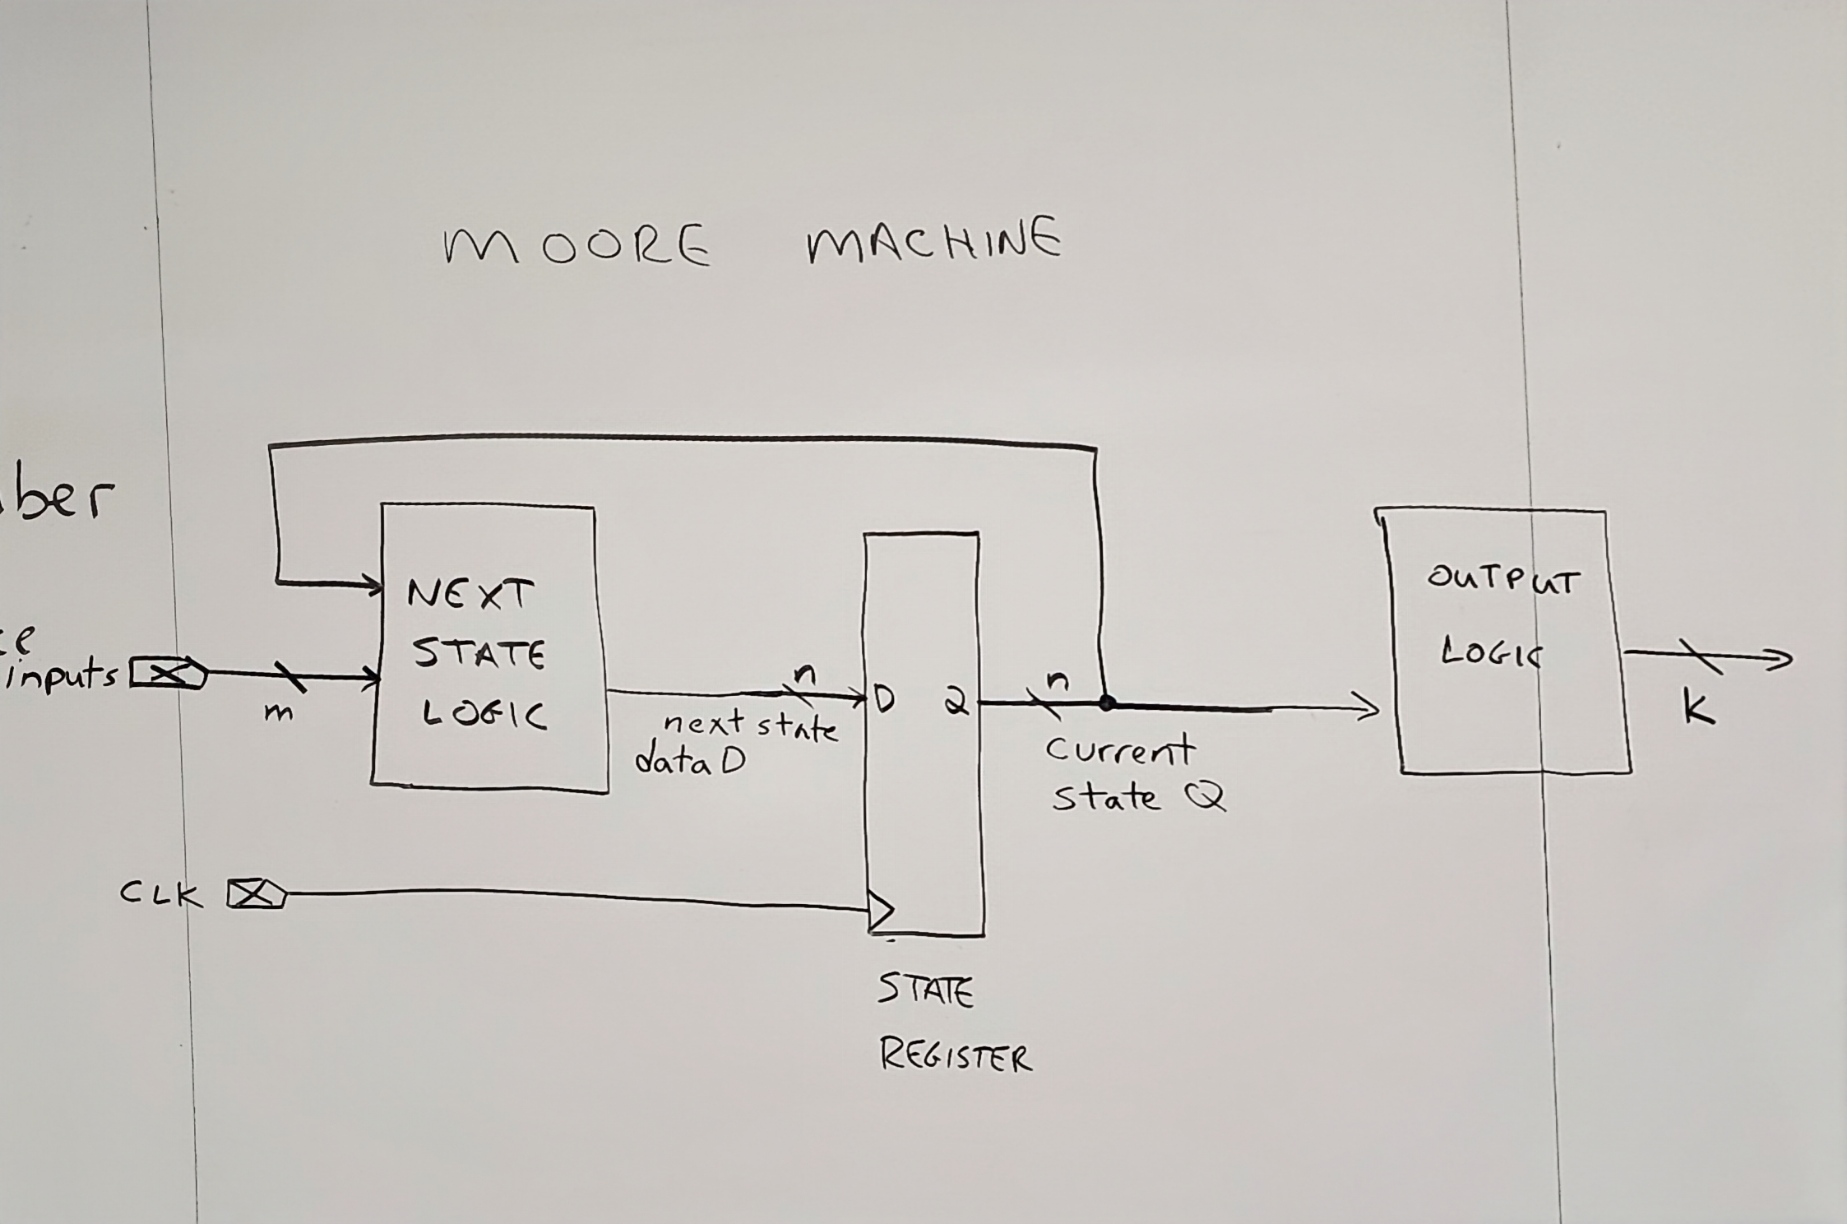 MOORE MACHINE
ber
NEXT
STATE
LOGIC
inputs
m
n
next state
data D
D Q
n
Current
state Q
OUTPUT
LOGIC
K
CLK
STATE
REGISTER